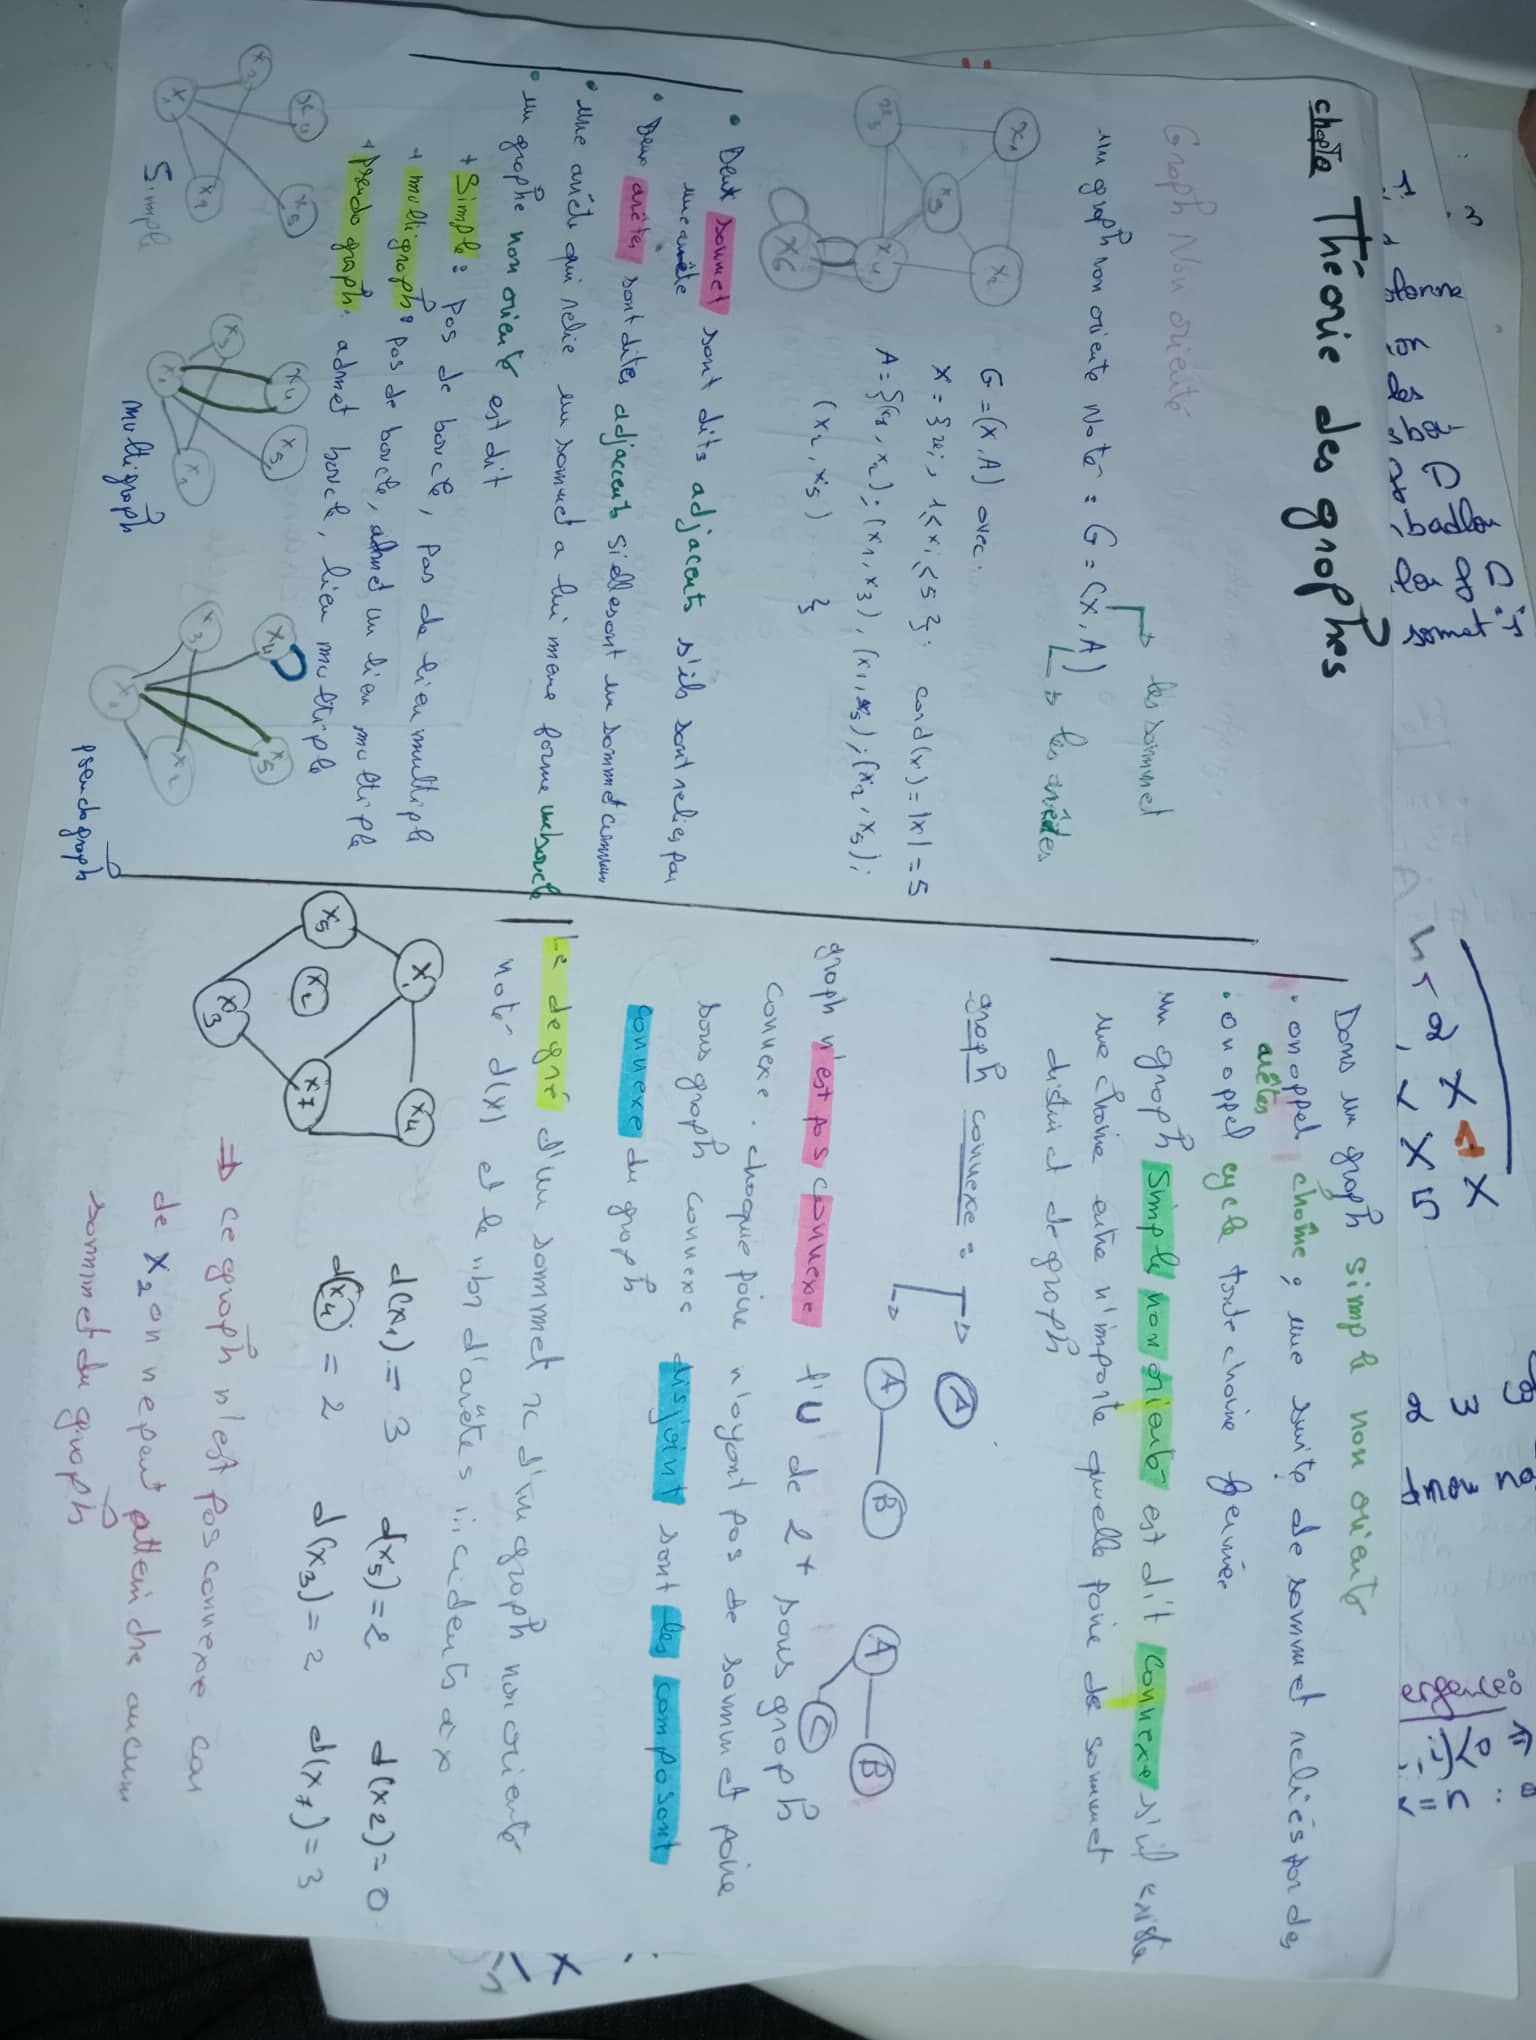 chapte Théorie des graphes
Graph Non orienté
un graph non oriente Noter : G = (X, A)
les sommet
les arêtes
x1
x2
x3
x5
x4
x6
G = (X, A) avec
X = {xi, 1 ≤ xi ≤ 5}; card(x) = |x| = 5
A = {(x1, x2); (x1, x3), (x1, x5); (x2, x5);
(x2, x5) }
• Deux sommet sont dits adjacents s'ils sont relies par
une arrête
• Deux arêtes sont dites adjacents si elles ont un sommet commun
• une arête qui relie un sommet a lui meme forme un boucle
• un graphe non orienté est dit
+ Simple : pas de boucle, pas de lien multiple
+ multigraph : pas de boucle, admet un lien multiple
+ Pseudo graph : admet boucle, lien multiple
x3
x4
x1
x2
x5
Simple
x3
x4
x1
x5
multigraph
x3
x4
x1
x2
x5
pseudograph
Dans un graph simple non oriente
• on appel chaîne ; une suite de sommet reliés par des
arêtes
• on appel cycle toute chaine fermée
un graph simple non orienté est dit connexe s'il existe
une chaine entre n'importe quelle paire de sommet
distinct de graph
graph connexe :
A
A B
A B C
graph n'est pas connexe l'U de 2+ sous graph
connexe. chaque paire n'ayant pas de sommet paire
sous graph connexe disjoint sont les composant
connexe du graph
Le degré d'un sommet x d'un graph non oriente
noter d(x) et le nbr d'arêtes incidents a x
x5
x1
x2
x3
x7
x4
d(x1) = 3 d(x5) = 2 d(x2) = 0
d(x4) = 2 d(x3) = 2 d(x7) = 3
⇒ ce graph n'est pas connexe car
de x2 on ne peut atteindre aucun
sommet du graph